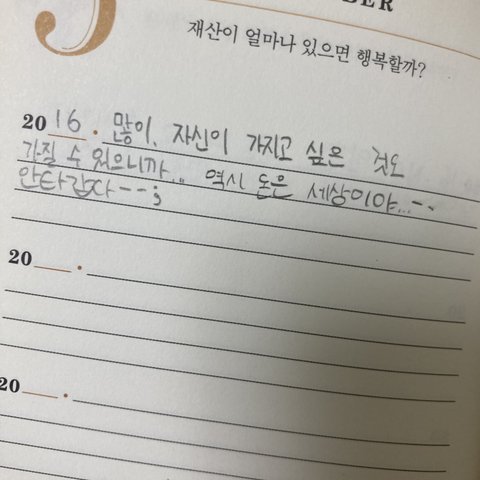 재산이 얼마나 있으면 행복할까?
2016. 많이. 자신이 가지고 싶은 것도
가질 수 있으니까... 역시 돈은 세상이야...--
안타깝다--;
20 .
20 .